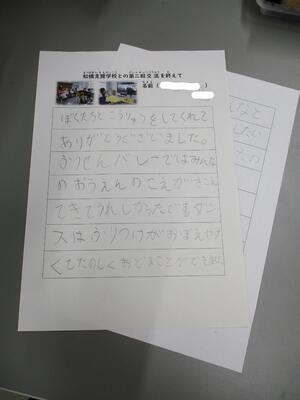 松橋支援学校との第二回交流を終えて
名前（
ぼくたちとこうりゅうをしてくれて
ありがとうございました。
ふうせんバレーではみんな
のおうえんのこえがきこえ
てきてうれしかったですダン
スはふりつけがおぼえやす
くてたのしくおどることができました
んなと
したい
たの